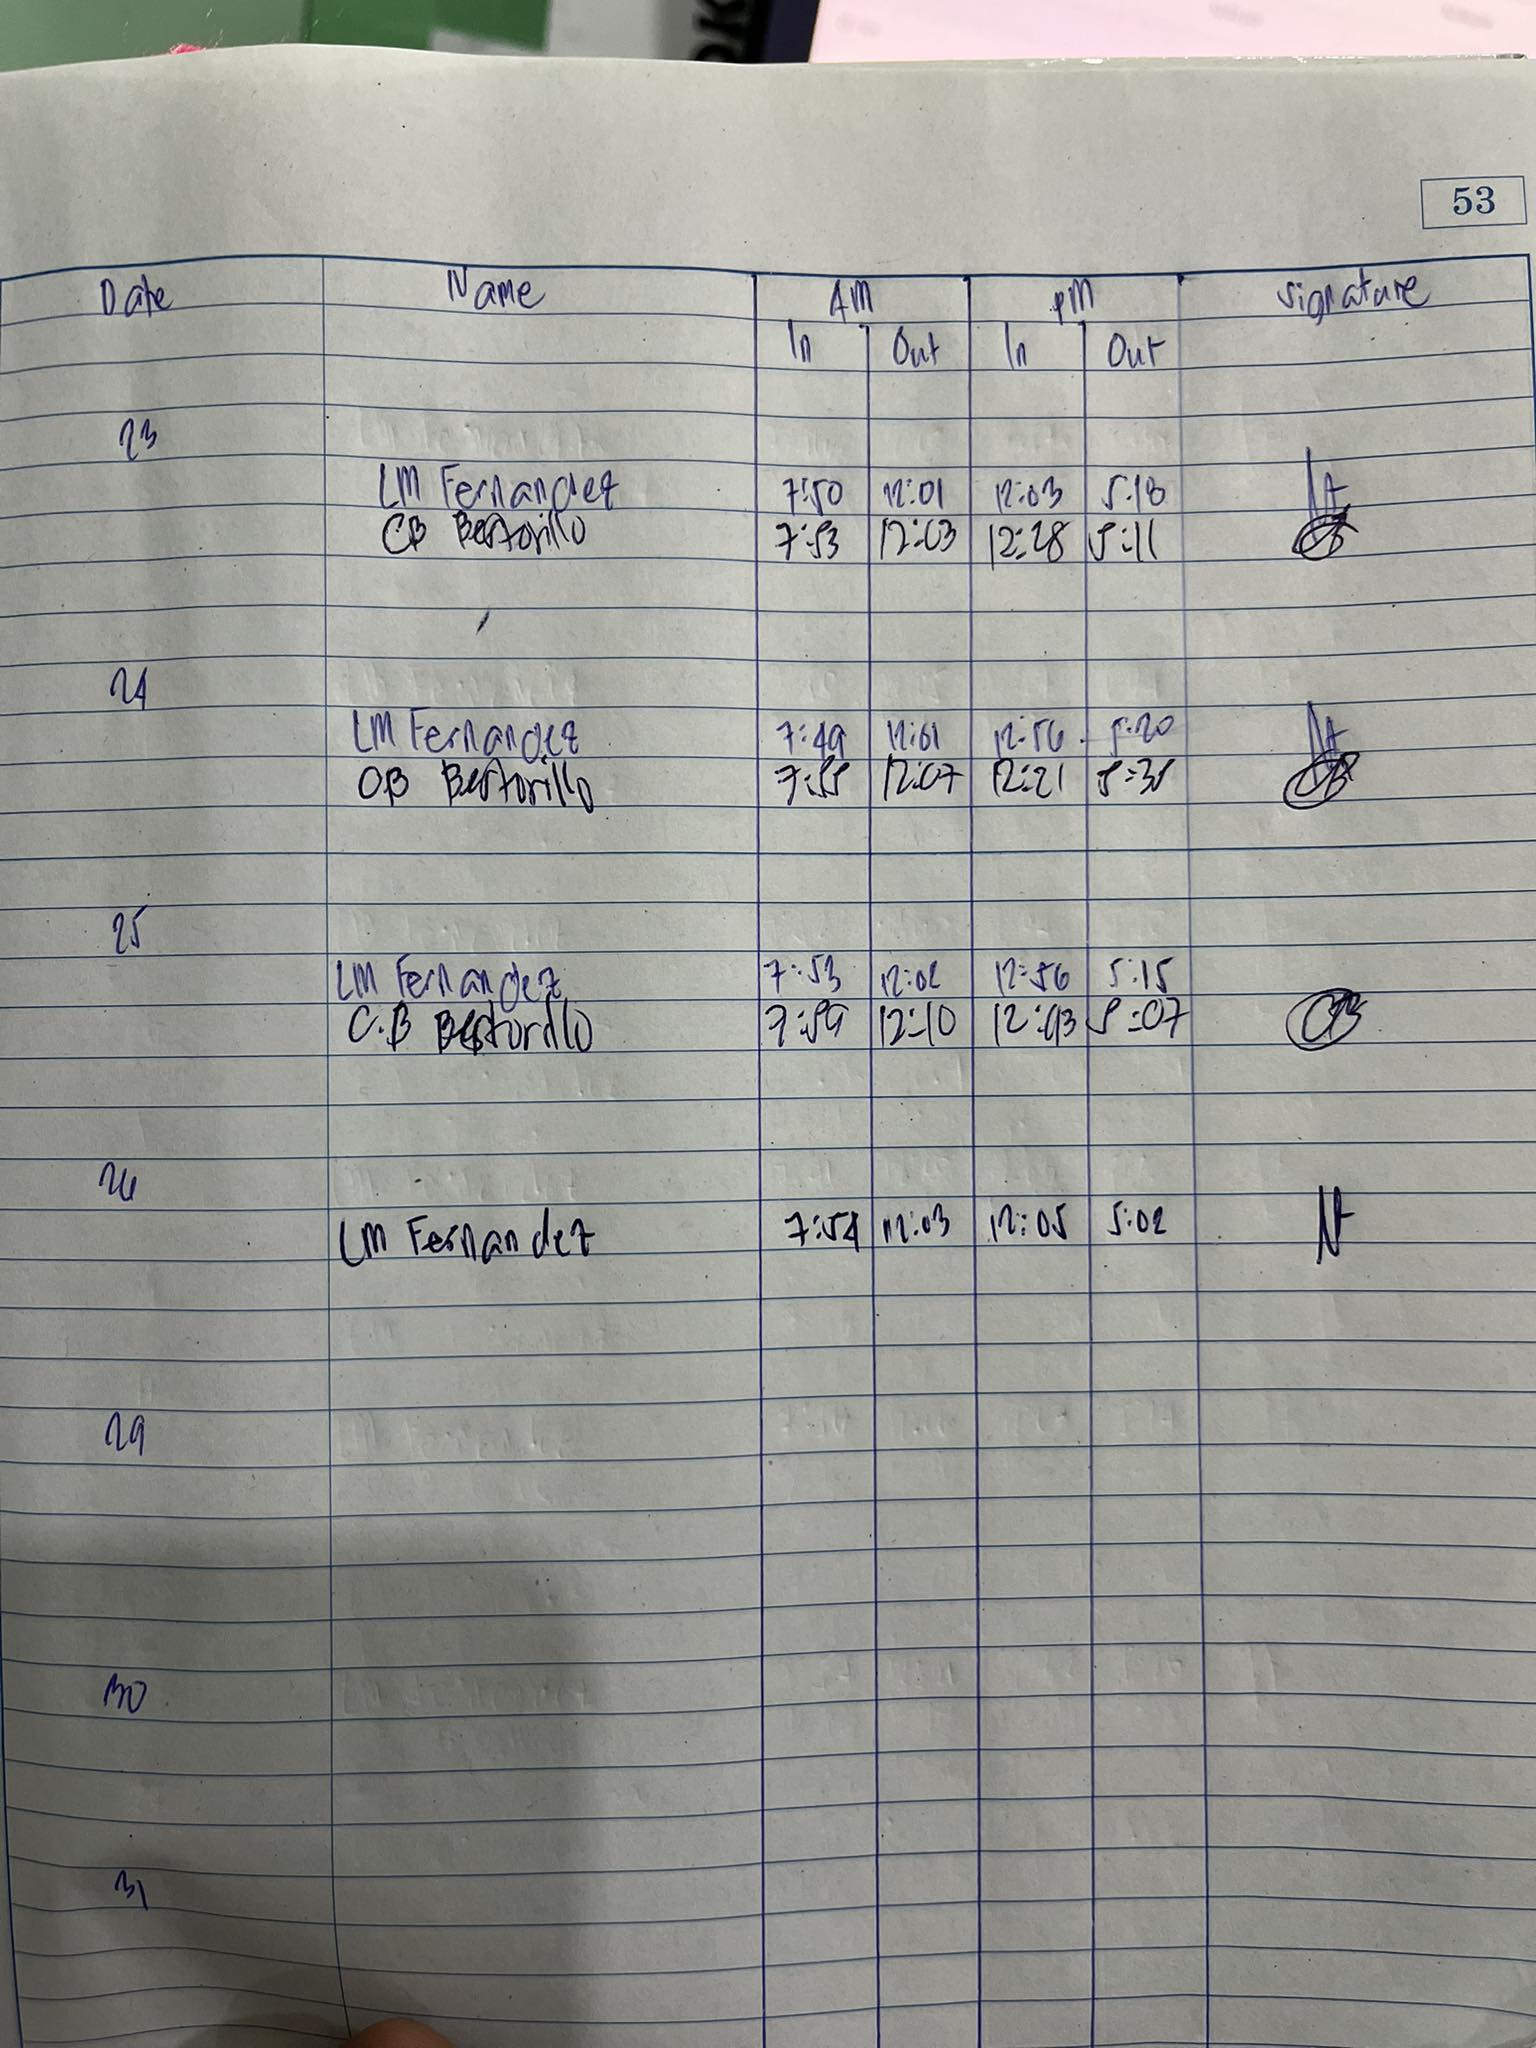 OK
53
Date Name AM PM Signature
In Out In Out
23
LM Fernandez 7:50 12:01 12:03 5:18
CB Bertorillo 7:53 12:03 12:28 5:11
24
LM Fernandez 7:49 12:01 12:56 5:20
CB Bertorillo 7:55 12:07 12:21 5:35
25
LM Fernandez 7:53 12:02 12:56 5:15
C.B Bertorillo 7:59 12:10 12:43 5:07 CB
26
LM Fernandez 7:54 12:03 12:05 5:02
29
30
31